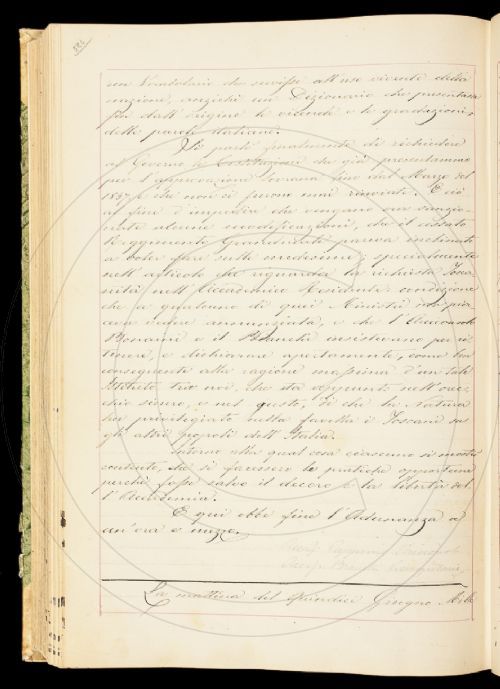 un Vocabolario che servisse all'uso vivente della
nazione, anzichè un Dizionario che presentasse
fin dall'origine le vicende e le gradazioni
delle parole italiane.
Si parlò finalmente di richiedere
al Governo le Costituzioni che già presentammo
per l'approvazione Sovrana fino dal Marzo del
1857 e che non ci furono mai rinviate. E ciò
al fine d'impedire che vengano ora sanzio-
nate alcune modificazioni, che il cessato
Reggimento Granducale pareva inclinato
a voler fare sulle medesime; specialmente
nell'articolo che riguarda la richiesta Tosca
nità nell'Accademico Residente: condizione
che a qualcuno di quei Ministri non pia-
ceva vedere annunziata, e che l'Avvocato
Bonaini e il Bianchi insistevano per ri-
tenere, e dichiarare apertamente, come
conseguente alla ragione massima d'un tale
Istituto tra noi, che sta appunto nell'orec-
chio sicuro, e nel gusto, di che la Natura
ha privilegiato nella favella i Toscani su
gli altri popoli dell'Italia.
Intorno alla qual cosa ciascuno si mostrò
consenziente, che si facessero le pratiche opportune
perchè fosse salvo il decoro e la libertà del
l'Accademia.
E qui ebbe fine l'Adunanza ad
un'ora e mezzo.
La mattina del quindici Giugno Mille